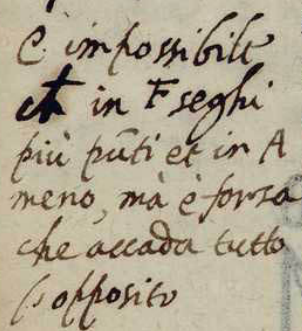 È impossibile
ch in F seghi
più pūti et in A
meno, mà è forza
che accada tutto
l'opposito